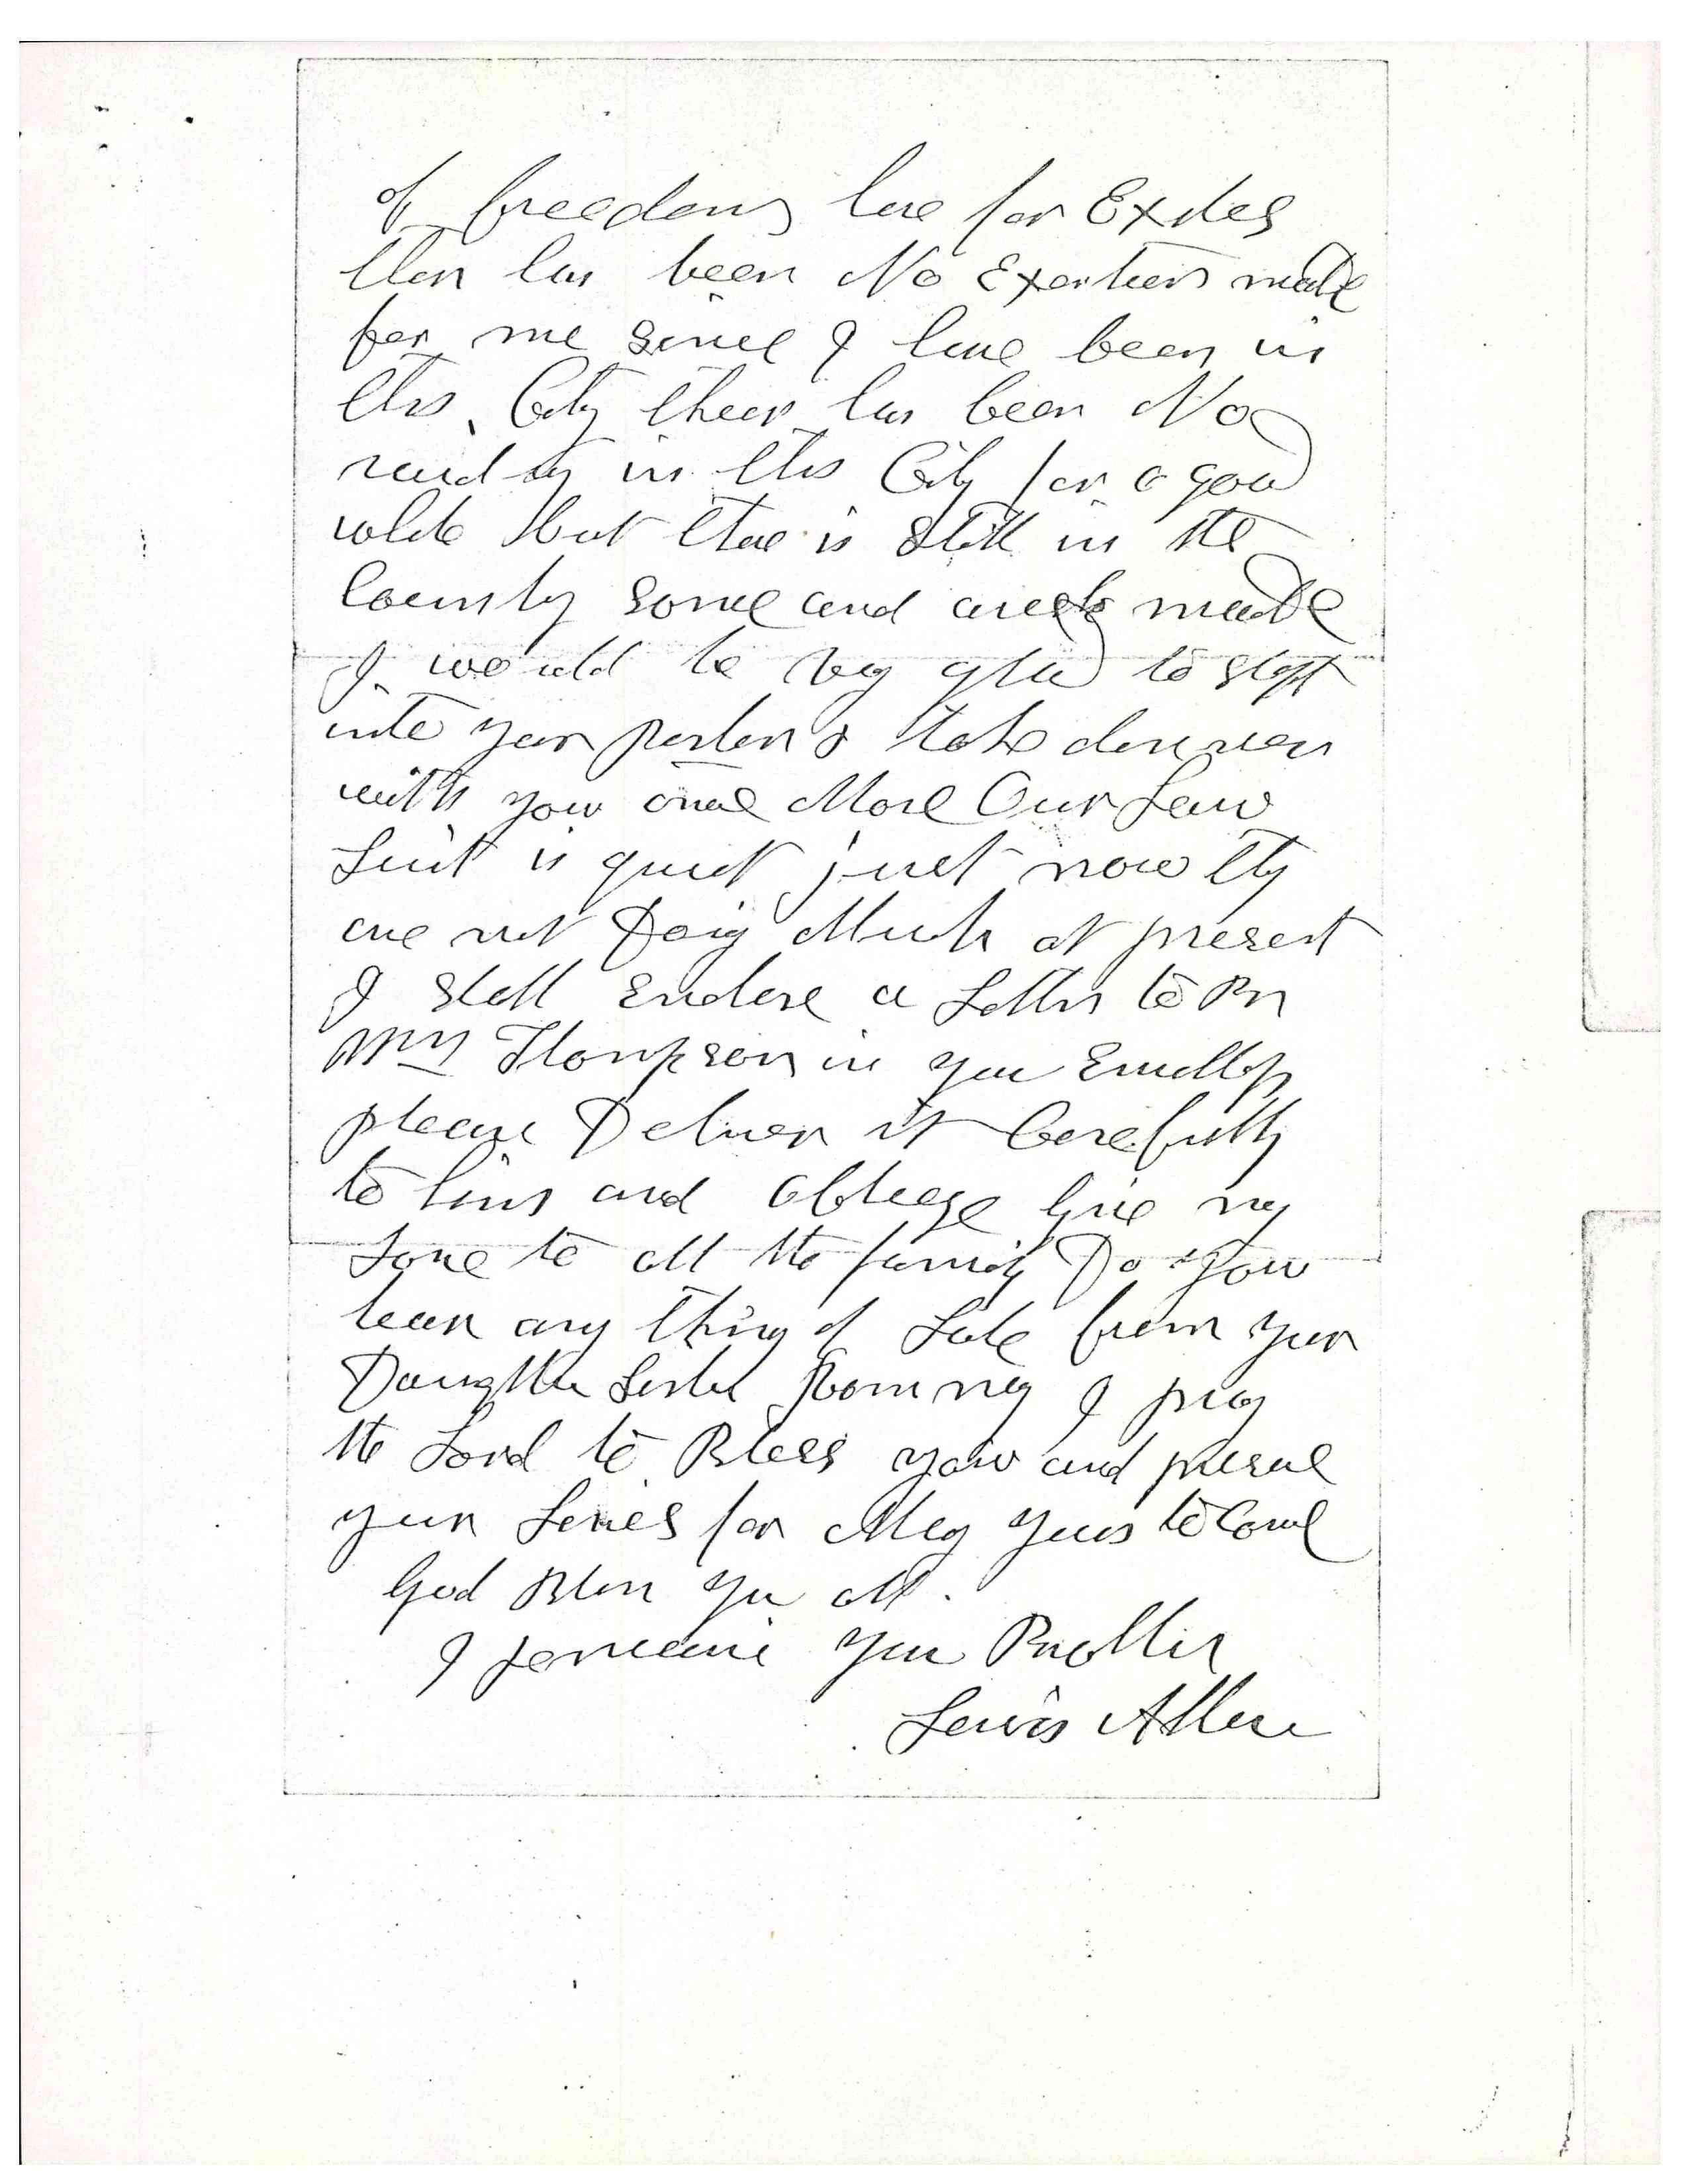 of freedom here for Exiles
ther has been No Exertions made
for me since I have been in
this City theer has been No
raid in this City for a good
while but thare is still in the
County some and arests made
I would be very glad to step
into your parlor & take dinner
with you once More Our Law
Suit is quiet just now thy
are not Doig Much at present
I shall Enclose a Letter to Br
Wm Thompson in your Envellop
please Deliver it Carefully
to him and obleege Give my
Love to all the family Do you
hear any thing of Late from your
Daughter Sister I pray
the Lord to Bless you and preserve
your Lives for Meny years to Come
God Bless you all.
I remain your Brother
Lewis Allen